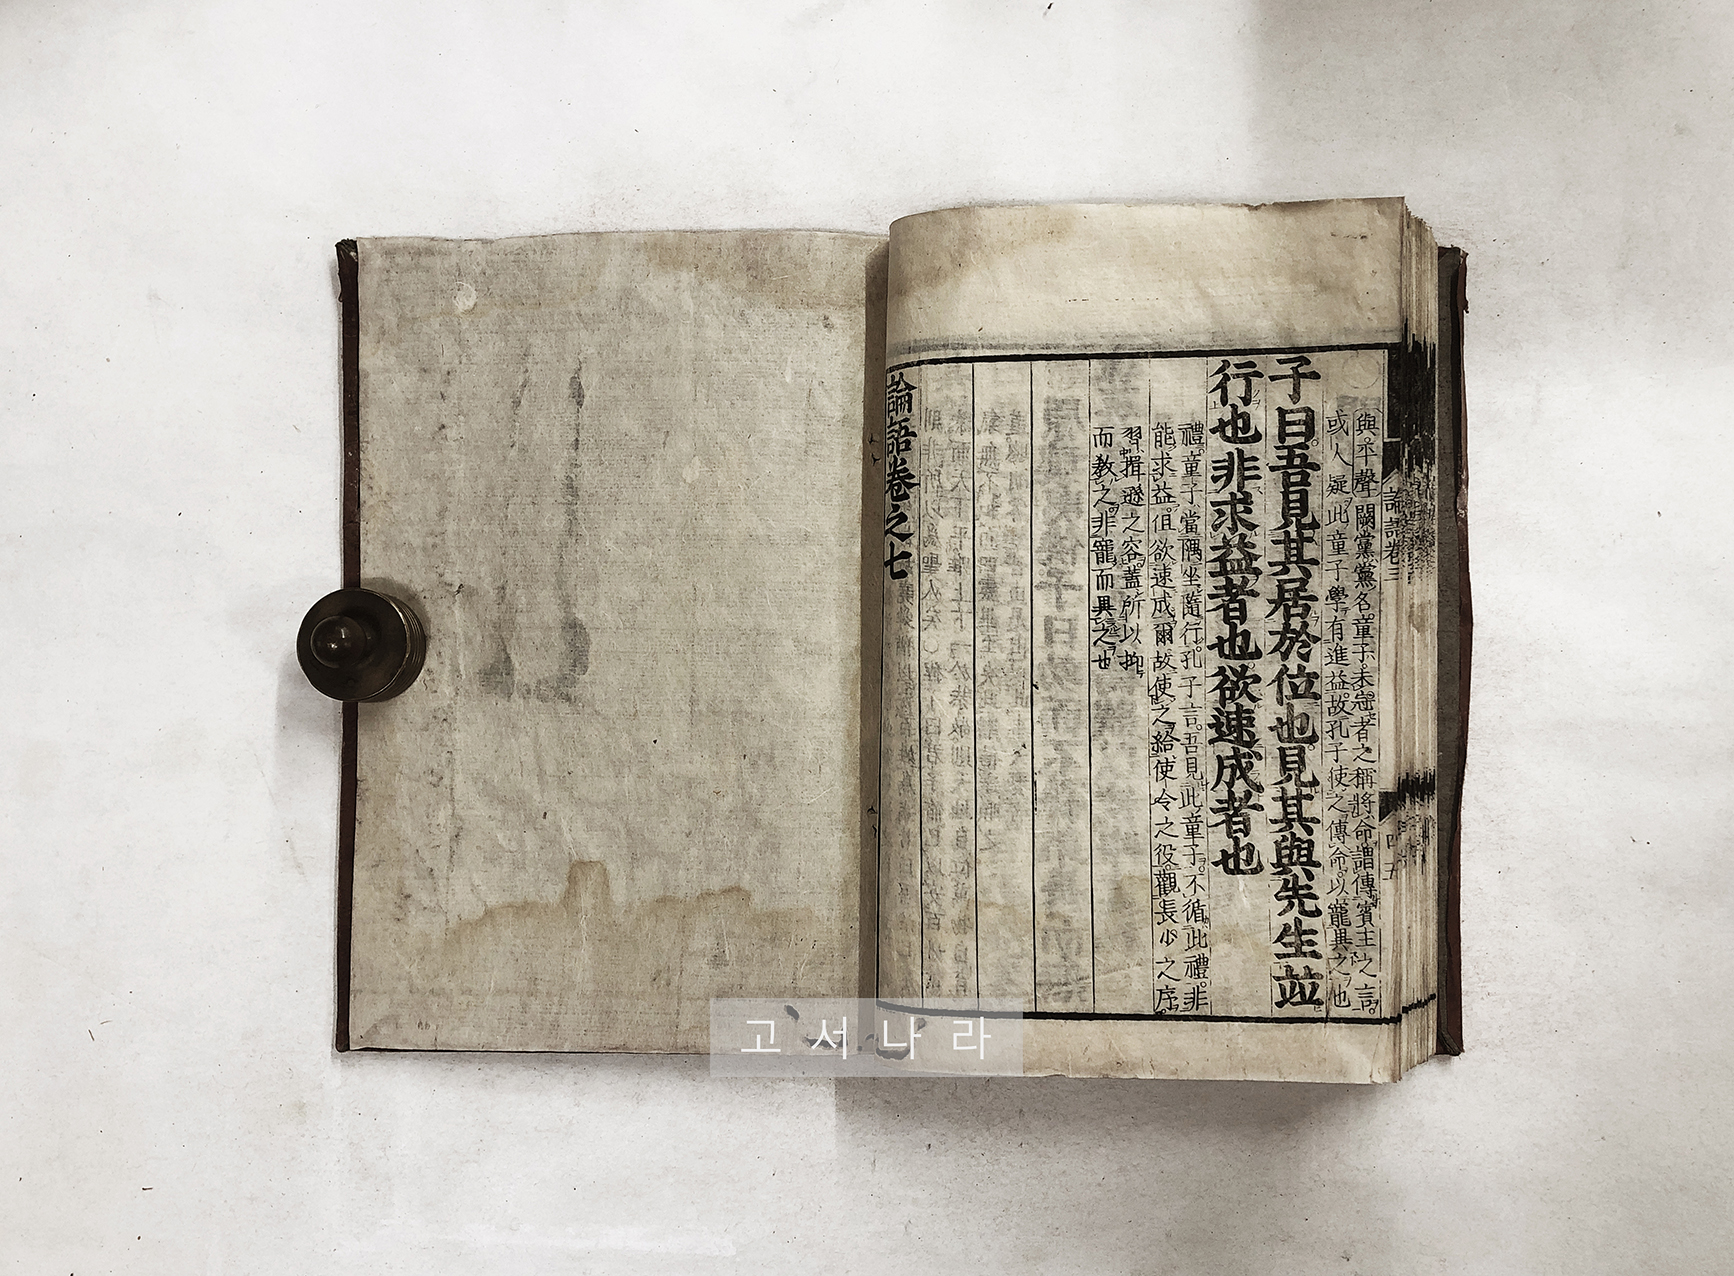 與平聲闕黨黨名童子未冠者之稱將命謂傳賓主之言
或人疑此童子學有進益故孔子使之傳命以寵異之也
子曰吾見其居於位也見其與先生並
行也非求益者也欲速成者也
禮童子當隅坐隨行孔子言吾見此童子不循此禮非
能求益但欲速成爾故使之給使令之役觀長少之序
習揖遜之容蓋所以抑
而教之非寵而異之也
論語卷之七
論語卷三
四五
고서나라